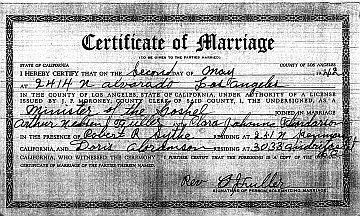 Certificate of Marriage
(TO BE GIVEN TO THE PARTIES MARRIED)
STATE OF CALIFORNIA COUNTY OF LOS ANGELES
I HEREBY CERTIFY THAT ON THE Second DAY OF May 1942
AT 2414 N Alvarado Los Angeles
IN THE COUNTY OF LOS ANGELES, STATE OF CALIFORNIA, UNDER AUTHORITY OF A LICENSE
ISSUED BY J. F. MORONEY, COUNTY CLERK OF SAID COUNTY, I, THE UNDERSIGNED, AS A
Minister of the Gospel JOINED IN MARRIAGE
Arthur Fuller Clara Johanna
IN THE PRESENCE OF Robert R RESIDING AT 241 N
CALIFORNIA, AND Doris RESIDING AT 3038
CALIFORNIA, WHO WITNESSED THE CEREMONY. I FURTHER CERTIFY THAT THE FOREGOING IS A COPY OF THE
CERTIFICATE OF MARRIAGE OF THE PARTIES THEREIN NAMED.
Rev. Fuller
SIGNATURE OF PERSON SOLEMNIZING MARRIAGE